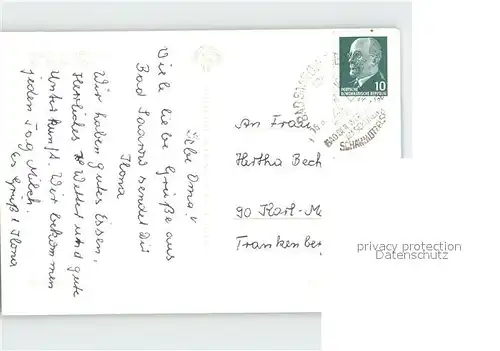 Liebe Oma!
Viele liebe Grüße aus
Bad Saarow sendet Dir
Ilona
Wir haben gutes Essen,
Herrliches Wetter und gute
Unterkunft. Wir bekommen
jeden Tag Milch.
Es grüßt Ilona
10
DEUTSCHE
DEMOKRATISCHE REPUBLIK
BAD SAAROW
An Frau
Hertha Bech
90 Karl-M
Frankenber
privacy protection
Datenschutz